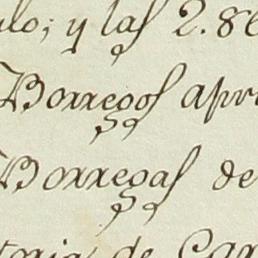 ulo; y las 2.86
Borregos apr
Borregas de
toria de Car